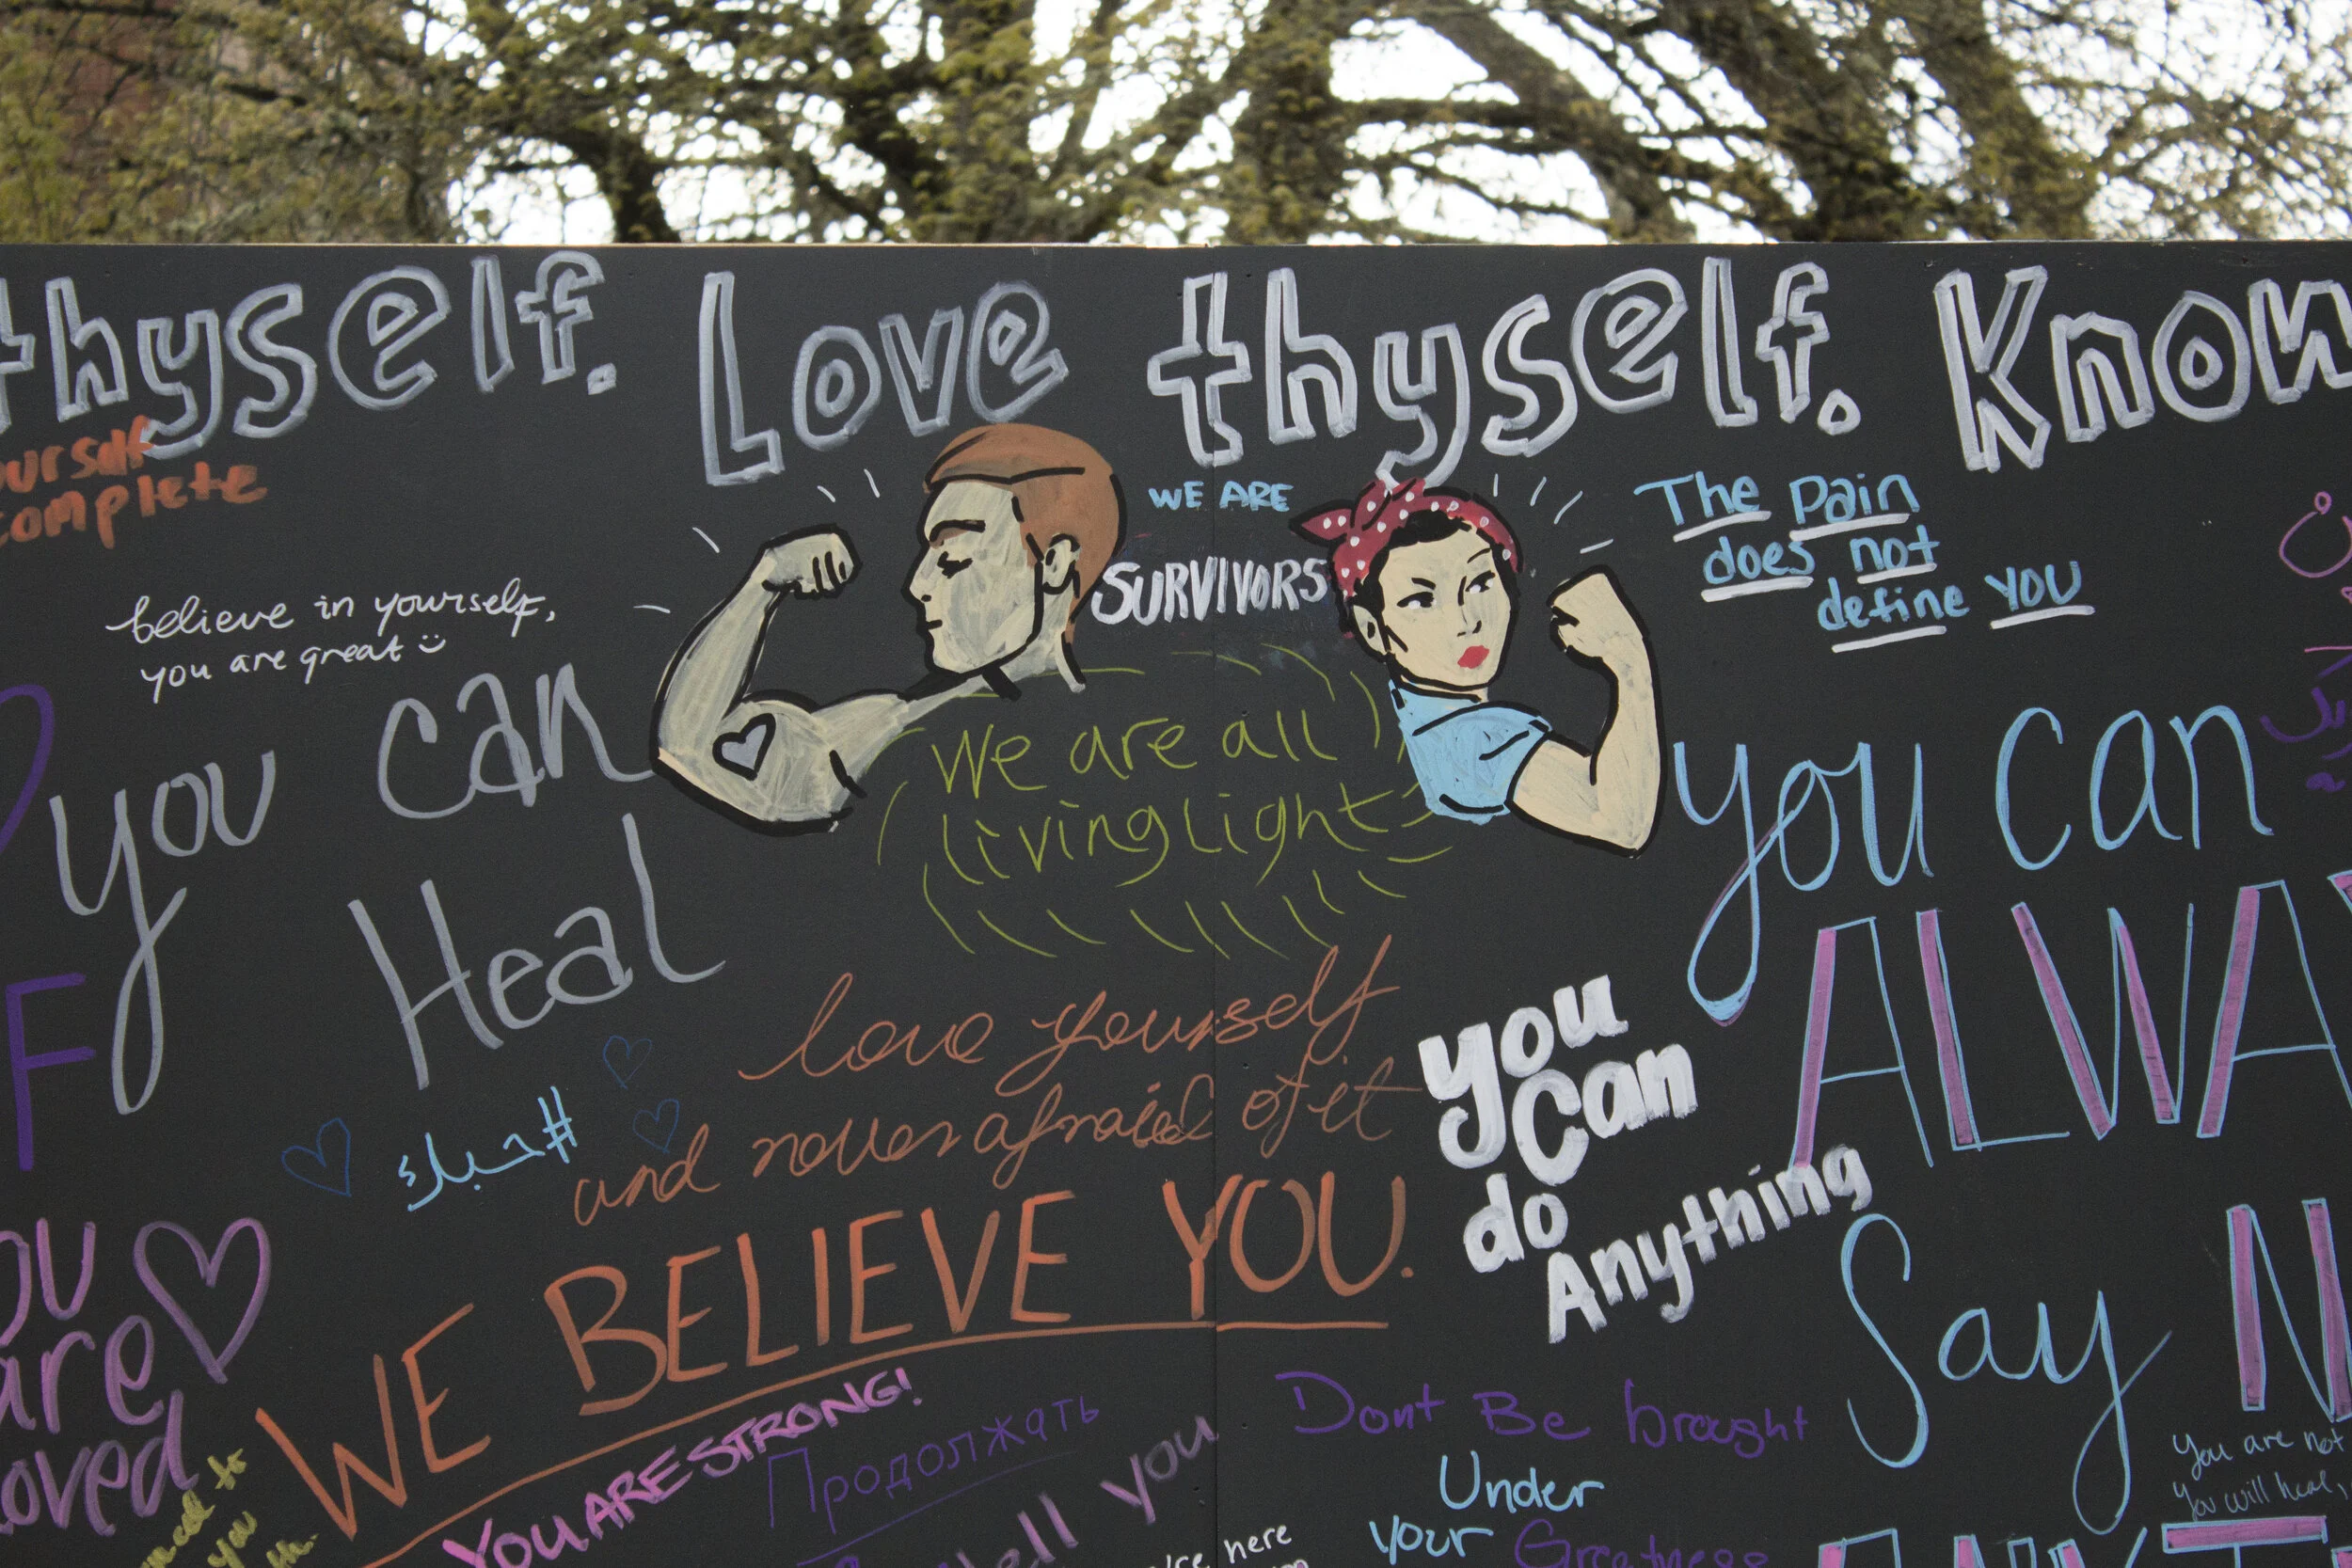 thyself. Love thyself. Know
complete
WE ARE
SURVIVORS
The pain
does not
define you
believe in yourself,
you are great
you can
Heal
We are all
living light
you can
ALWA
Say N
love yourself
and never afraid of it
you
can
do
Anything
WE BELIEVE YOU.
are
YOU ARE STRONG!
Продолжать
you
Dont Be brought
Under
your Greatness
here
You are not
You will heal,